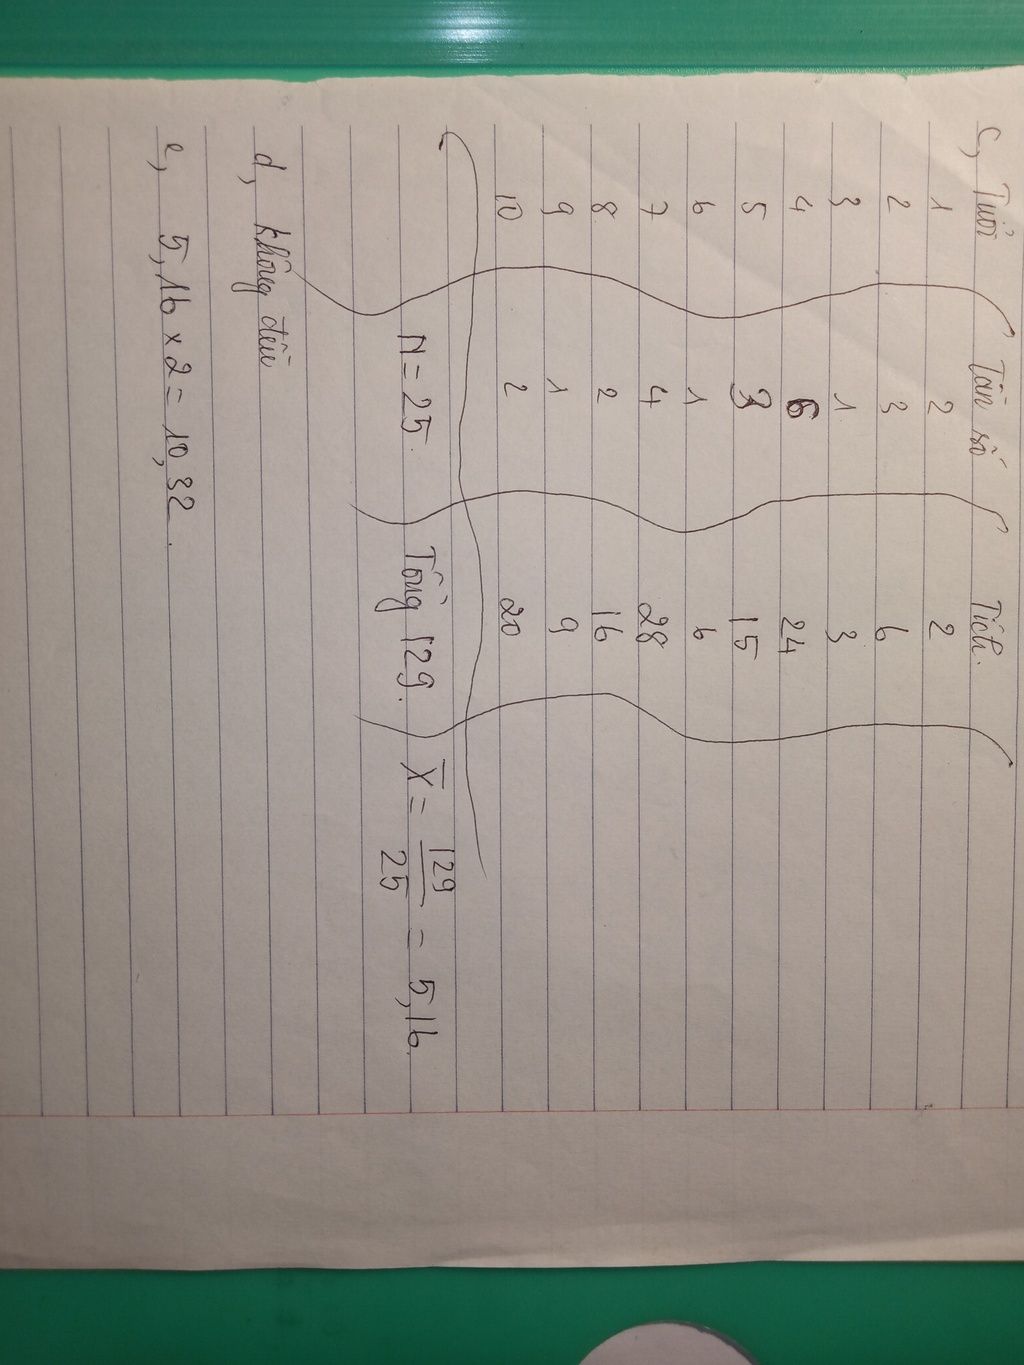 c, Tuổi Tần số Tích.
1 2 2
2 3 6
3 1 3
4 6 24
5 3 15
6 1 6
7 4 28
8 2 16
9 1 9
10 2 20
N = 25. Tổng 129. X̄ = 129/25 = 5,16.
d, không đều
e, 5,16 x 2 = 10,32.